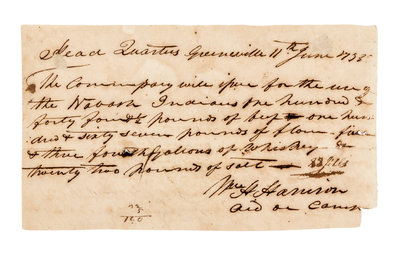 Head Quarters Greeneville 11th June 1795
The Commissary will issue for the use of
the Wabash Indians one hundred &
forty four & ½ pounds of beef – one hun-
dred & sixty seven pounds of flour – five
& three fourth Gallons of Whiskey &
twenty two pounds of salt
Wm H Harrison
Aid de Camp